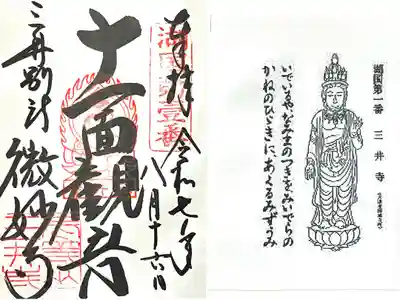 奉拝 令和七年
八月十六日
湖国第壱番
十一面観音
三井別所 微妙寺
湖国第一番 三井寺
いでいるやなみまのつきをみいでらの
かねのひゞきに、あくるみずうみ